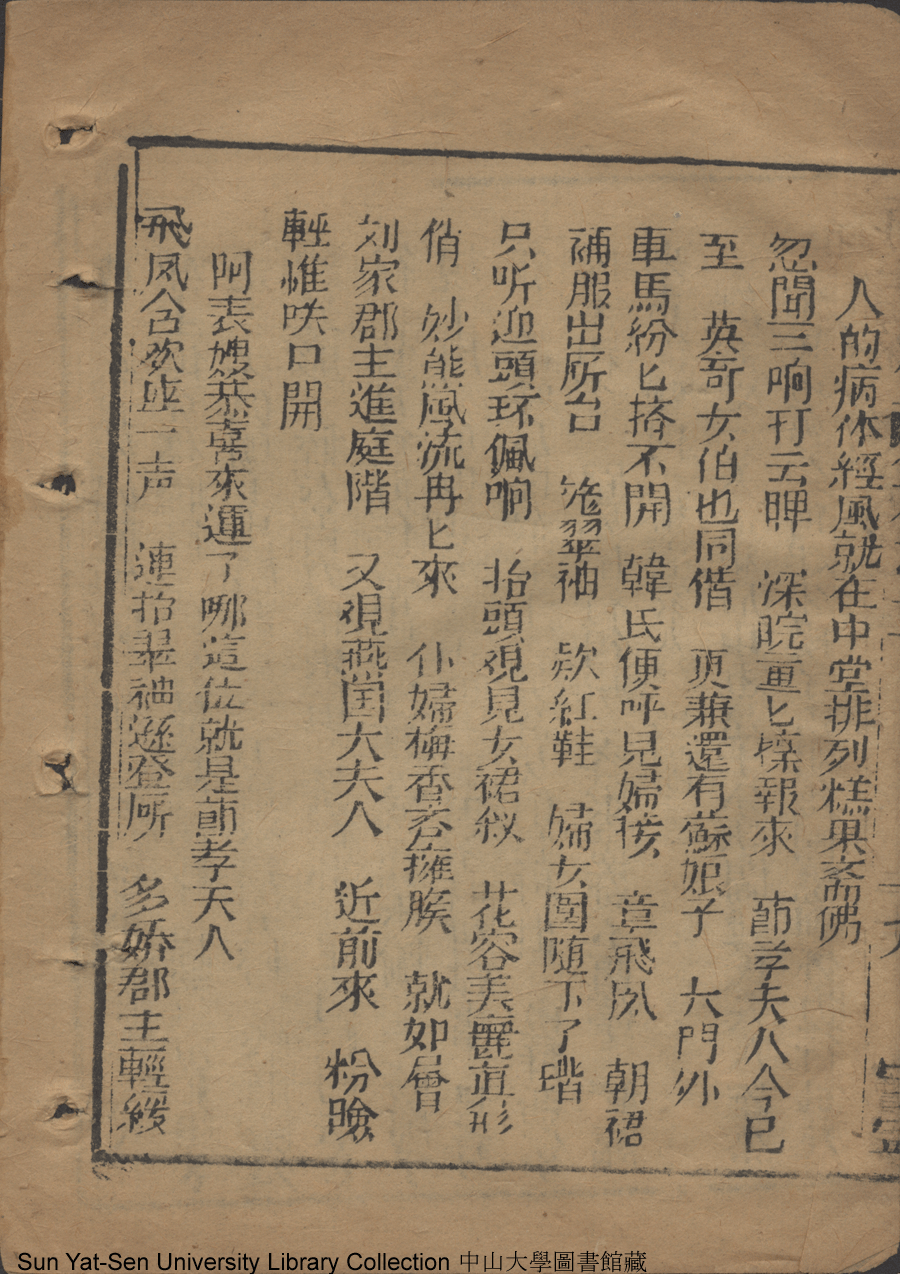 人的病体經風就在中堂排列糕果斋佛
忽聞三响打云 深 重匕 報來 莭孝夫人今已
至 英奇女伯也同偕 更兼還有蘇娘子 大門外
車馬紛匕擠不開 韓氏便呼兒婦接 章飛凤 朝裙
補服出所台 翠袖 紅鞋 婦女圍随下了堦
只听迎頭环佩响 抬頭观見女裙釵 花容美麗真形
俏 妙態風流冉匕來 仆婦梅香齐擁 就如
刘家郡主進庭階 又观燕国大夫人 近前來 粉臉
輕 口開
阿表嫂恭喜來運了哪這位就是莭孝夫人
飛凤含欢 一声 連抬翠袖遜登所 多娇郡主輕緩
Sun Yat-Sen University Library Collection 中山大學圖書館藏